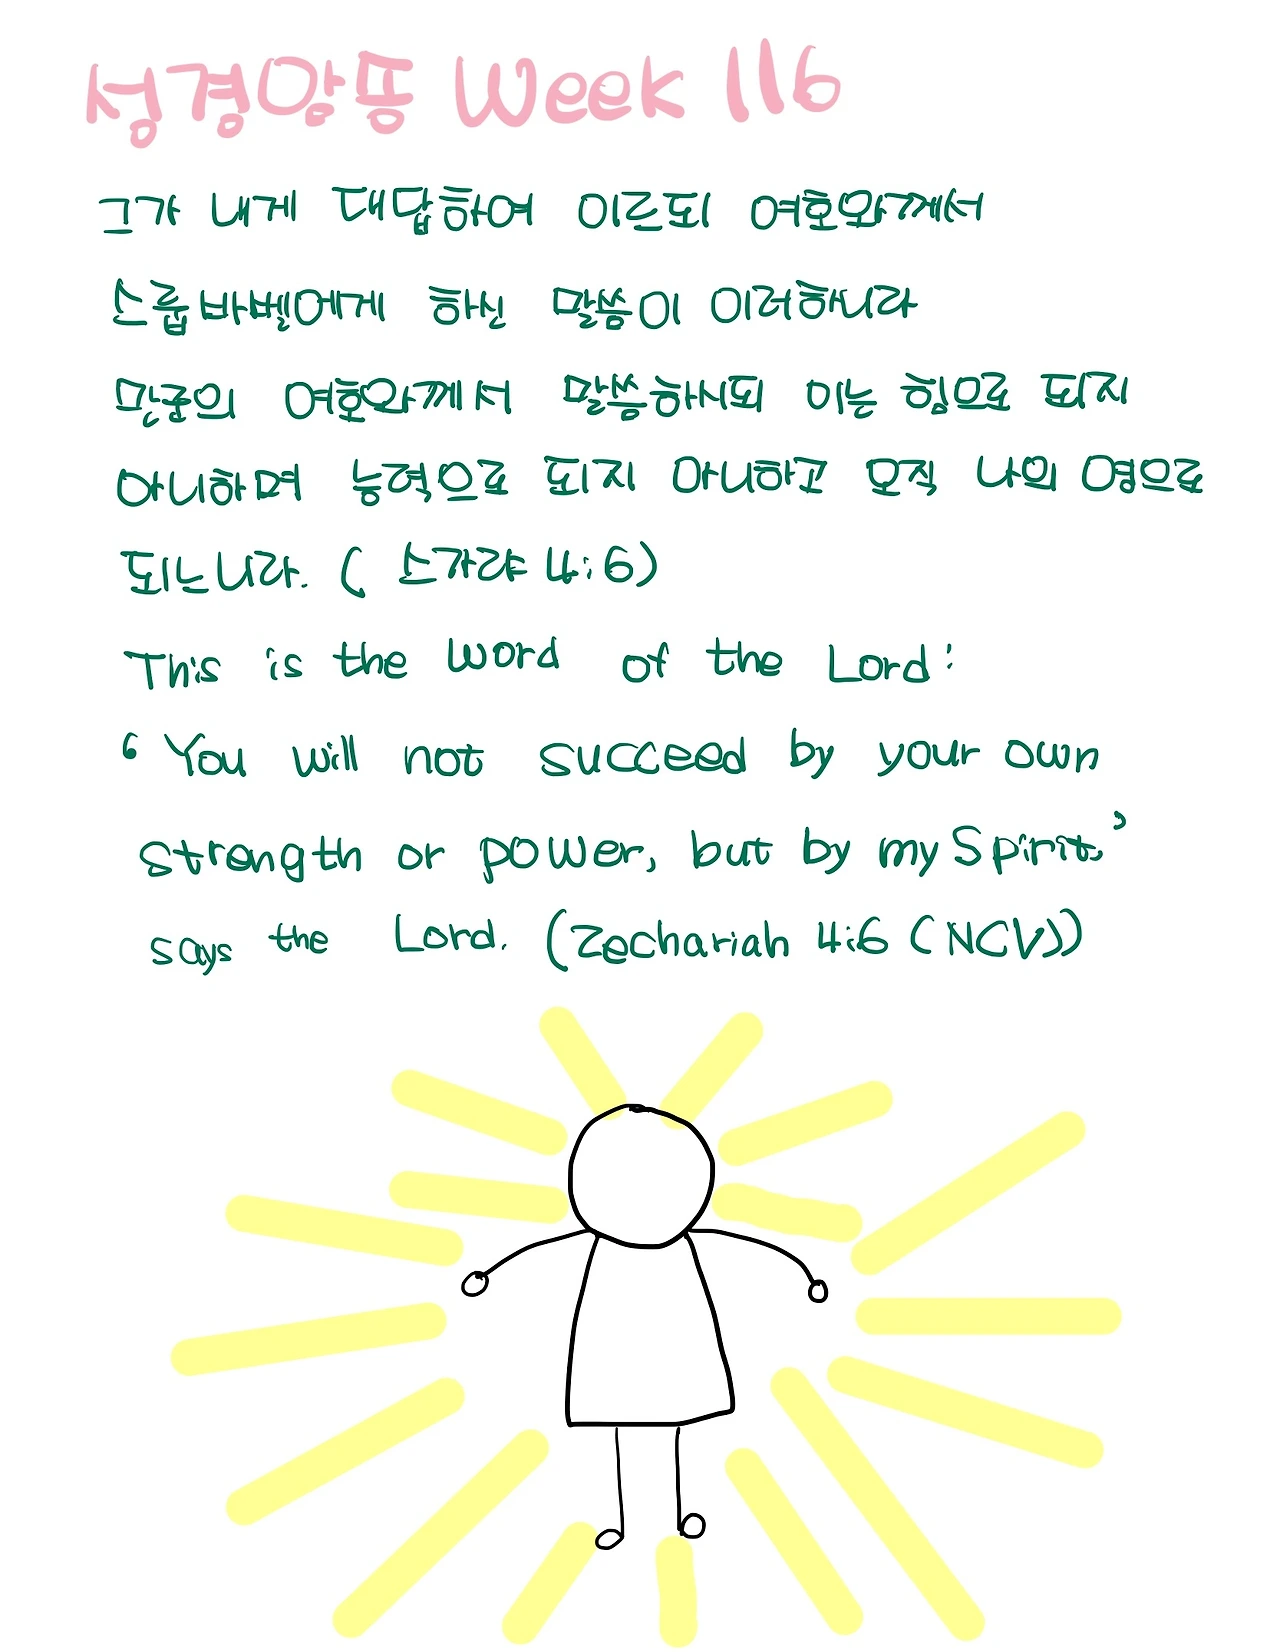 성경암똥 Week 116
그가 내게 대답하여 이르되 여호와께서
스룹바벨에게 하신 말씀이 이러하니라
만군의 여호와께서 말씀하시되 이는 힘으로 되지
아니하며 능력으로 되지 아니하고 오직 나의 영으로
되느니라. ( 스가랴 4:6)
This is the word of the Lord:
‘ You will not succeed by your own
strength or power, but by my Spirit,’
says the Lord. (Zechariah 4:6 (NCV))